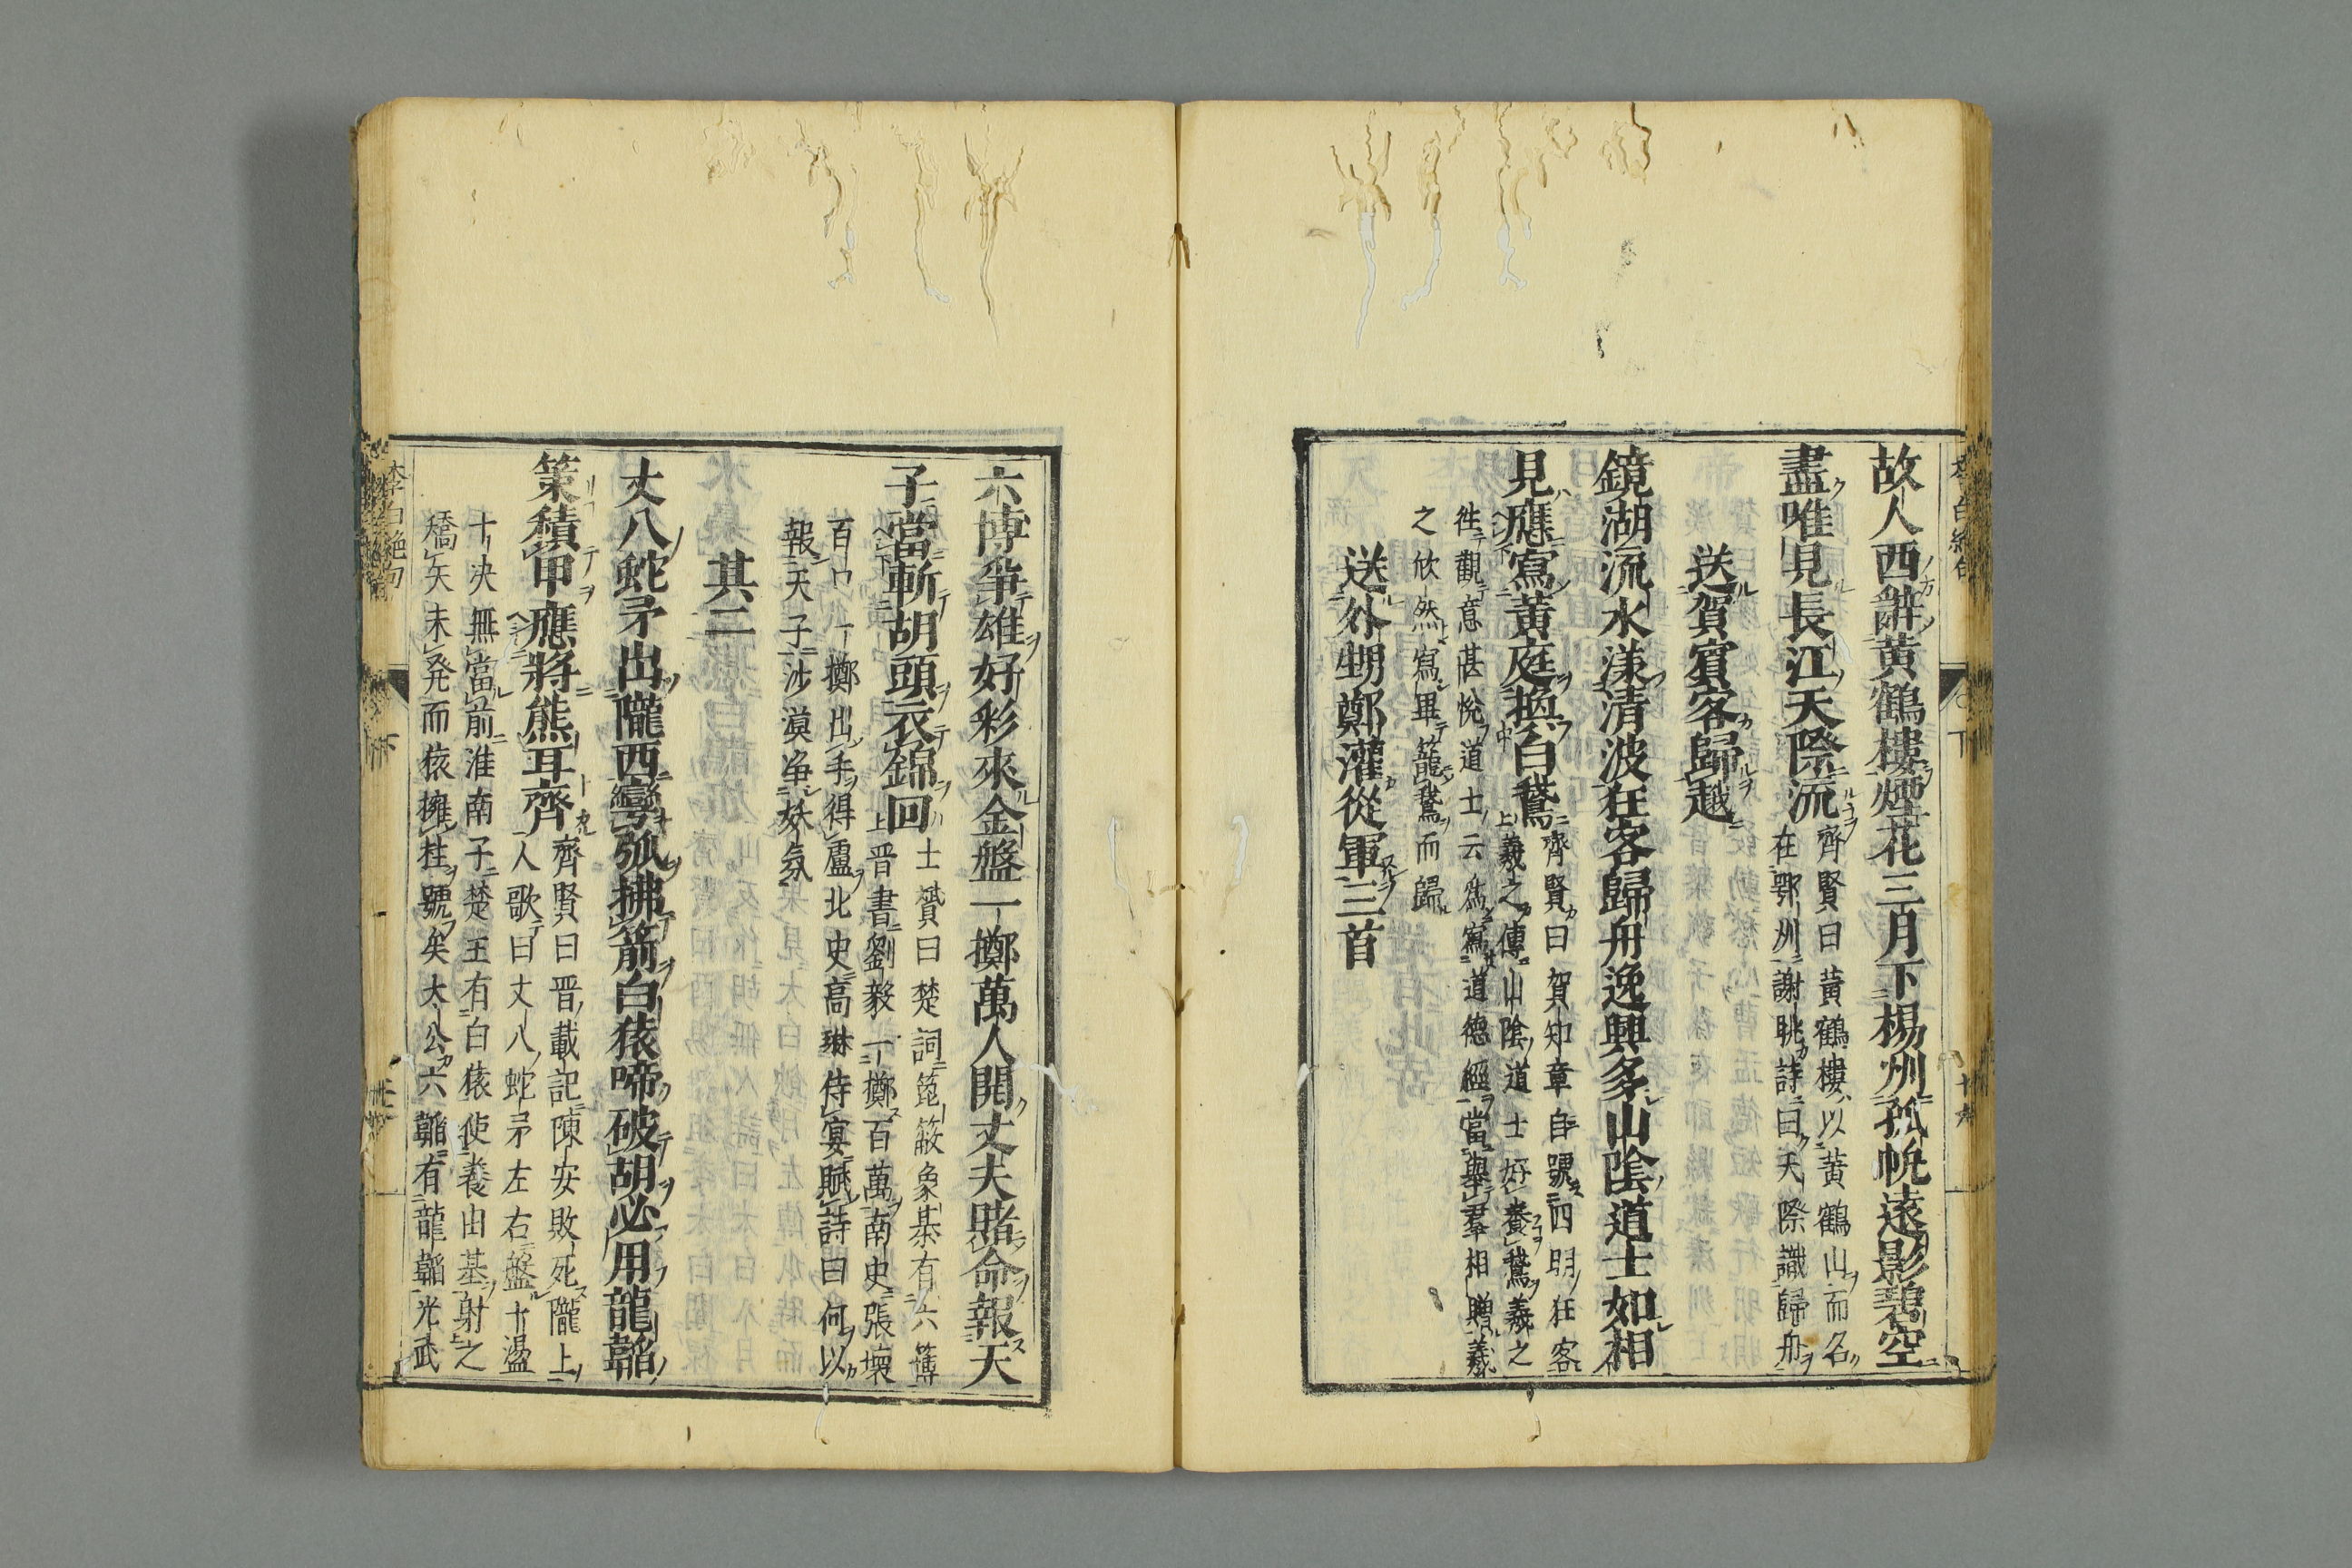 故人西辭黄鶴樓煙花三月下楊洲孤帆遠影碧空
盡唯見長江天際流
齊賢曰黄鶴樓以黄鶴山而名
在鄂州謝眺詩曰天際識歸舟
送賀賓客歸越
鏡湖流水漾清波狂客歸舟逸興多山陰道士如相
見應寫黄庭換白鵞
齊賢曰賀知章自號四明狂客
羲之傳山陰道士好養鵞羲之
徃觀意甚悅道士云爲寫道德經當擧羣相贈羲
之欣然寫畢籠鵞而歸
送外甥鄭灌從軍三首
六博爭雄好彩來金盤一擲萬人開丈夫賭命報天
子當斬胡頭衣錦回
士贇曰楚詞箟蔽象棊有六簿
晋書劉毅一擲百萬南史張壞
百口一擲出手得盧北史高琳侍宴賦詩曰何以
報天子沙漠净妖氛
其二
丈八蛇矛出隴西彎弧拂箭白猿啼破胡必用龍韜
策積甲應將熊耳齊
齊賢曰晋載記陳安敗死隴上
人歌曰丈八蛇矛左右盤十盪
十决無當前淮南子楚王有白猿使養由基射之
矯矢未発而猿擁柱號矣大公六韜有龍韜光武
李白絶句
下